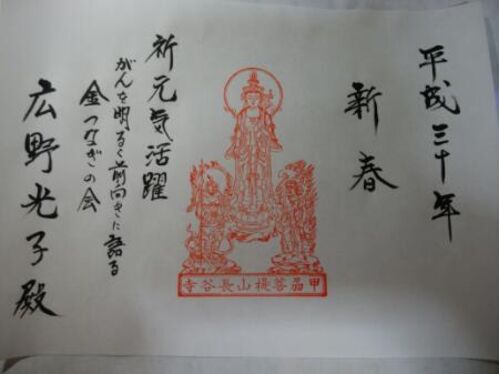 平成三十年
新春
祈元気活躍
がんを明るく前向きに語る
金つなぎの会
広野光子殿
甲 菩提山長谷寺